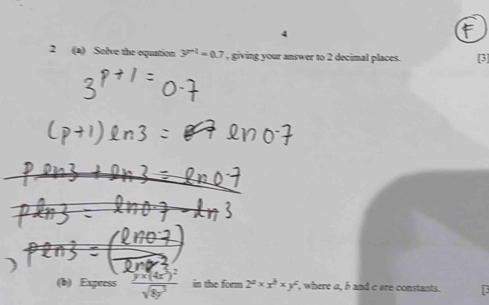 4
F
2 (a) Solve the equation 3^{p+1} = 0.7, giving your answer to 2 decimal places. [3]
3^{p+1} = 0.7
(p+1) ln3 = ln 0.7
p ln3 + ln3 = ln0.7
p ln3 = ln0.7 - ln3
p ln3 = (ln0.7 / ln 3)
(b) Express \frac{y×(4x^3)^2}{\sqrt{8y^3}} in the form 2^a × x^b × y^c, where a, b and c are constants. [3